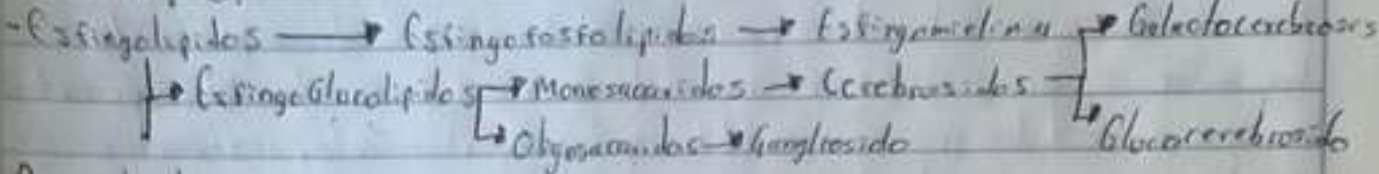 -Esfingolipidos → Esfingofosfolipidos → Esfingomielina → Galactocerebrosis
→ EsfingoGlucolipidos → Monosacaridos → Cerebrosidos
→ Oligosacaridos → Gangliosido → Glucocerebrosido